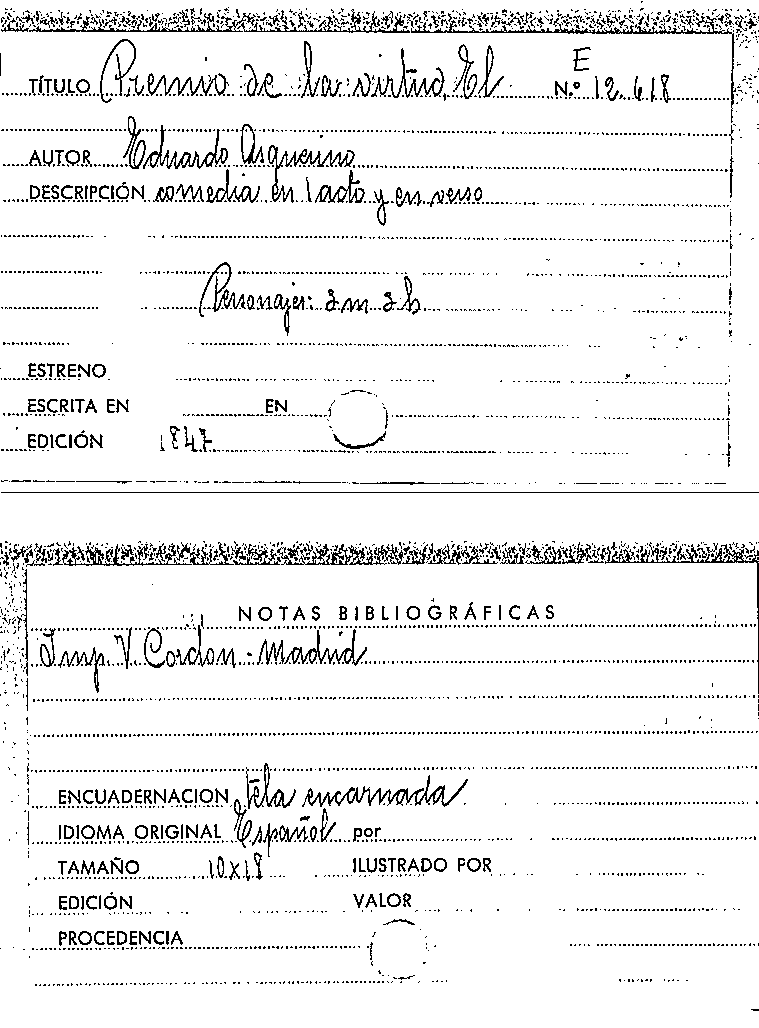 E
TÍTULO Premio de la virtud, El N.º 12.618
AUTOR Eduardo Asquerino
DESCRIPCIÓN comedia en 1 acto y en verso
Personajes: 2 m 2 h
ESTRENO
ESCRITA EN EN
EDICIÓN 1847
NOTAS BIBLIOGRÁFICAS
Imp. V. Cordon - Madrid
ENCUADERNACION tela encarnada
IDIOMA ORIGINAL Español por
TAMAÑO 10x18 ILUSTRADO POR
EDICIÓN VALOR
PROCEDENCIA